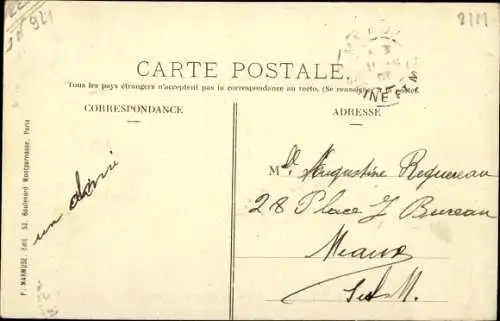 CARTE POSTALE
Tous les pays étrangers n'acceptent pas la correspondance au recto. (Se renseigner à la poste).
CORRESPONDANCE
ADRESSE
un ami
Mlle Augustine
28 Place J Bureau
Meaux
S et M.
P. MARMUSE, Édit. 52, Boulevard Montparnasse, Paris
INE